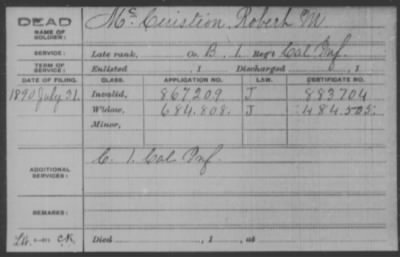 DEAD
NAME OF SOLDIER: Mc Ceristion, Robert M
SERVICE: Late rank, Co. B, 1 Reg't Cal Inf.
TERM OF SERVICE: Enlisted , 1 Discharged , 1
DATE OF FILING. CLASS. APPLICATION NO. LAW. CERTIFICATE NO.
1890 July 31. Invalid, 867209 J 883704
Widow, 684.808. J 484.505.
Minor,
ADDITIONAL SERVICES: C. 1. Cal. Inf.
REMARKS:
Died , 1 , at